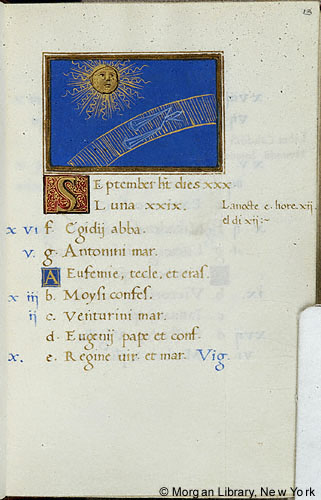 13
September ht dies xxx
Luna xxix.
La nocte e hore xij
el di xij :~
x vi f. Egidij abba.
v. g. Antonini mar.
A Eufemie, tecle, et eras.
x iij b. Moysi confes.
ij c. Venturini mar.
d. Eugenij pape et conf.
x. e. Regine vir. et mar. Vig.
© Morgan Library, New York